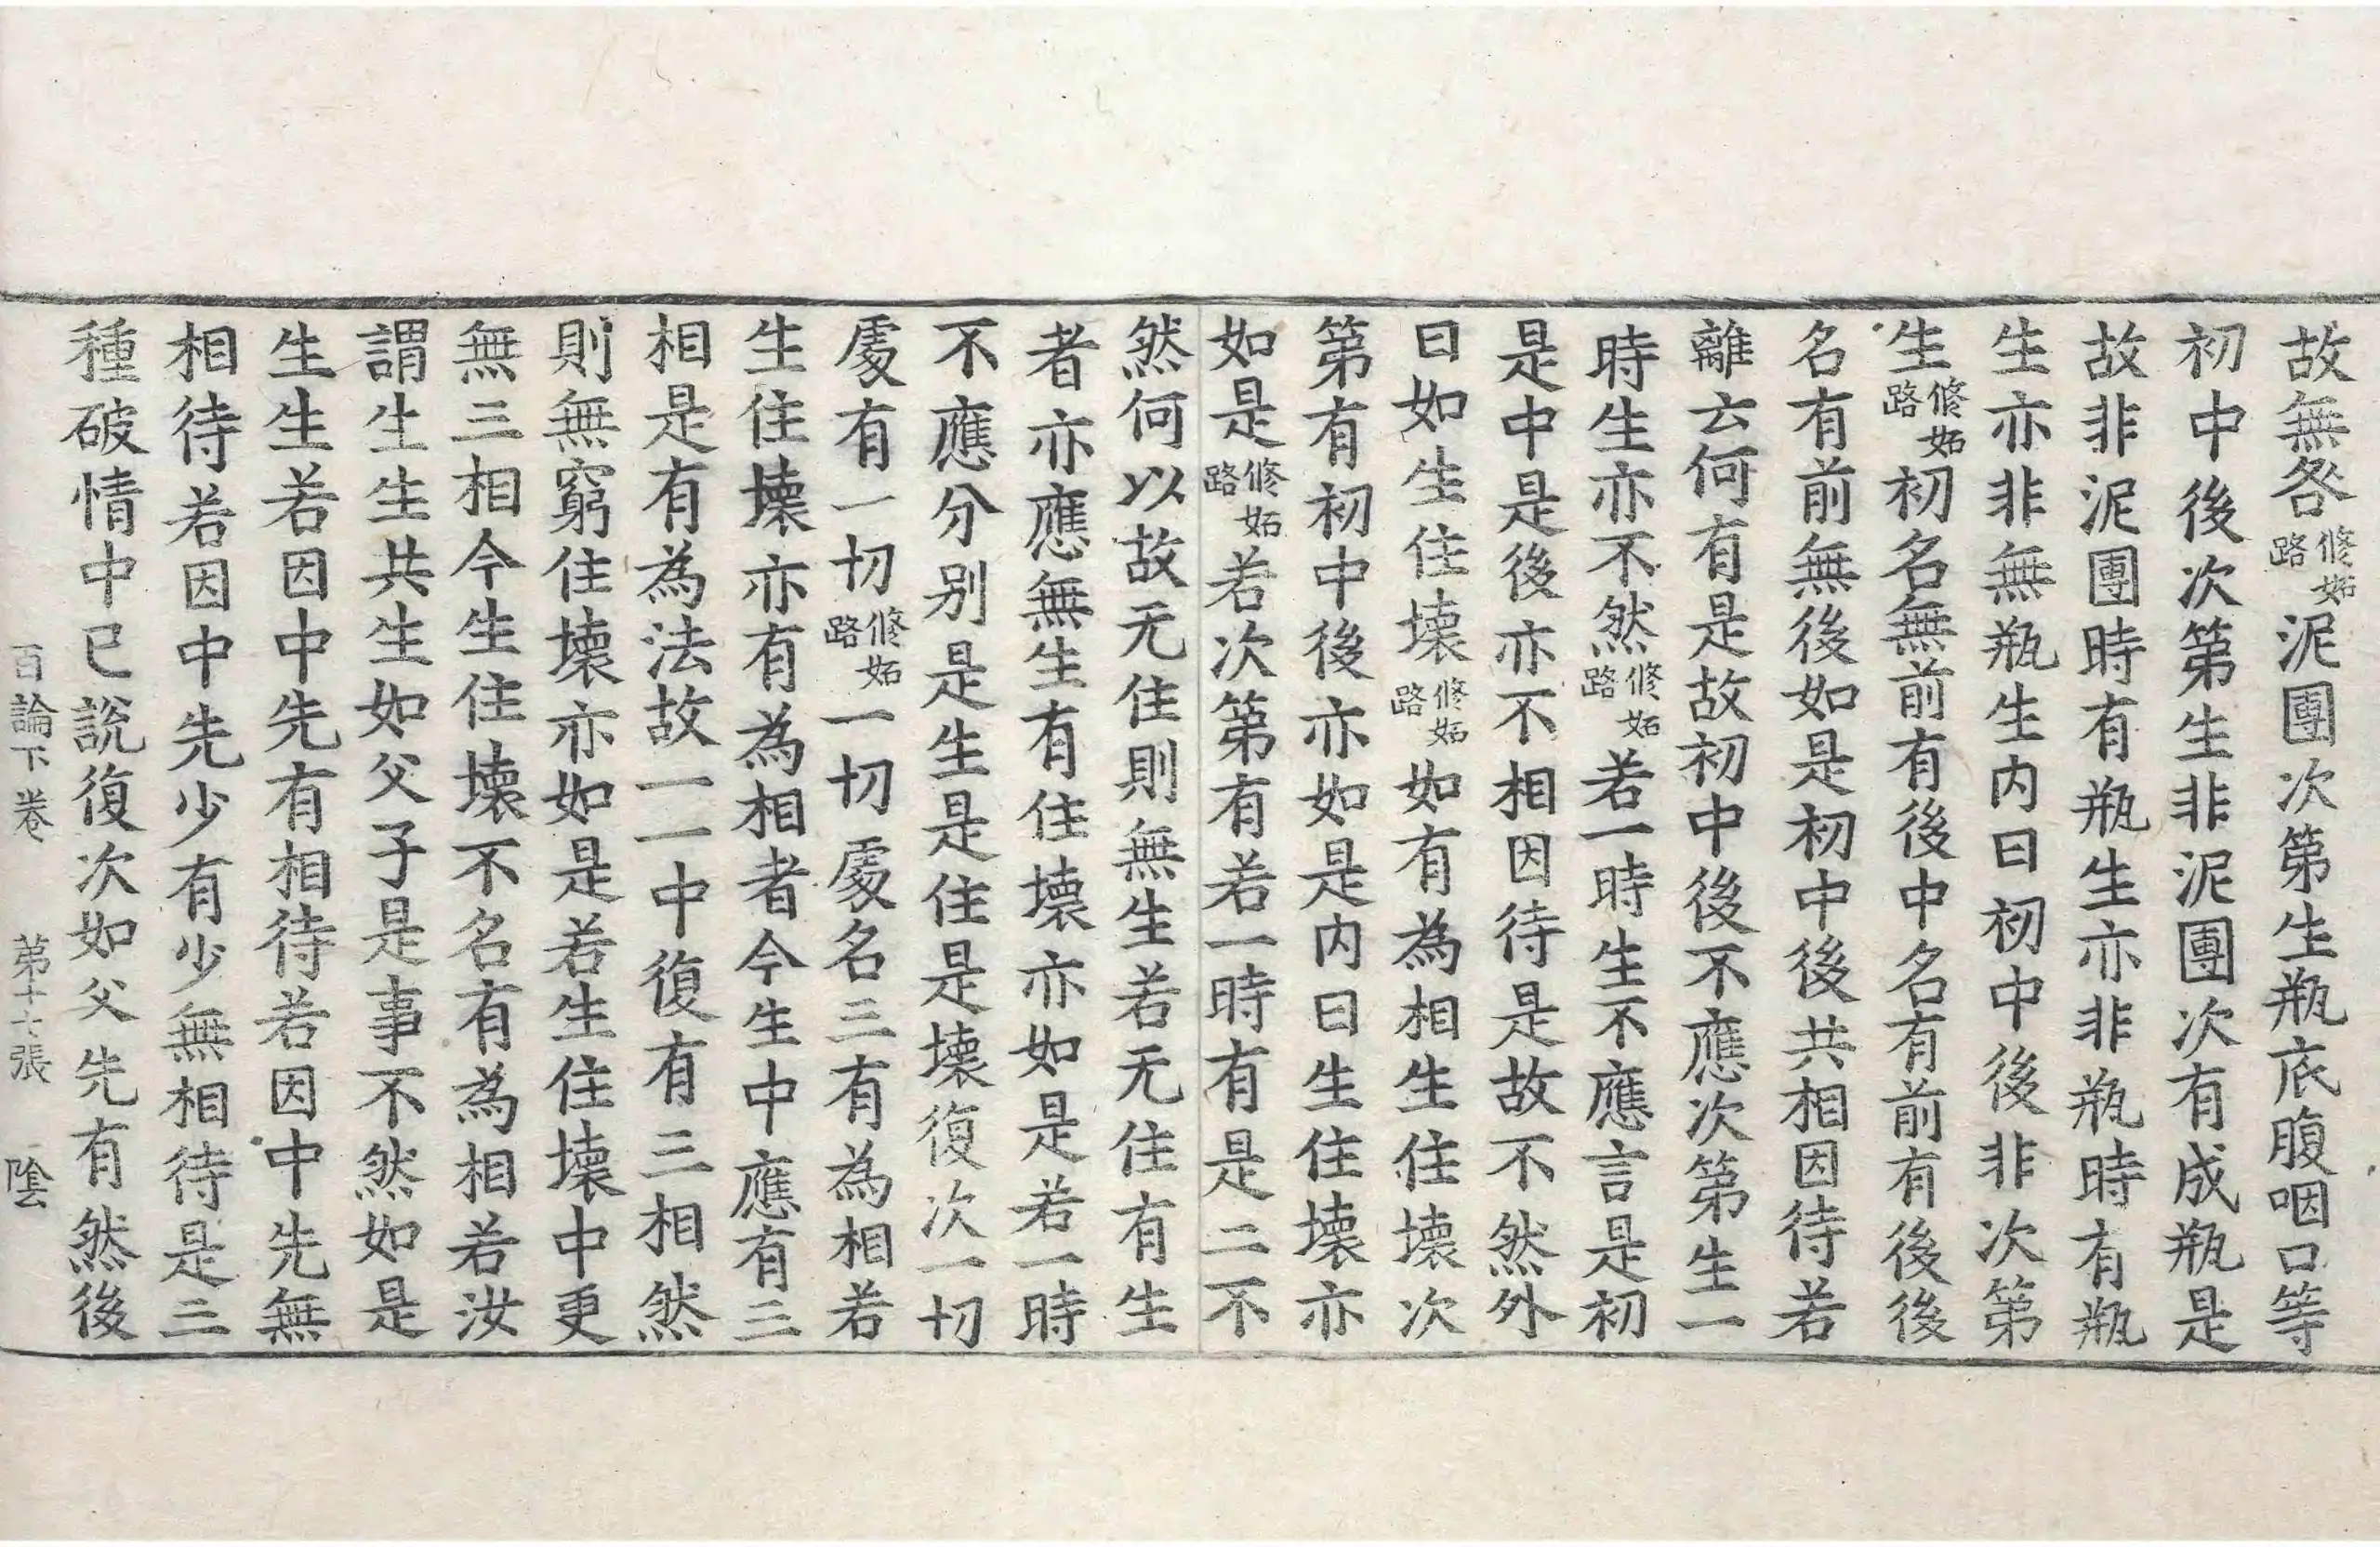 故無咎修妬路泥團次第生瓶底腹咽口等
初中後次第生非泥團次有成瓶是
故非泥團時有瓶生亦非瓶時有瓶
生亦非無瓶生内曰初中後非次第
生修妬路初名無前有後中名有前有後後
名有前無後如是初中後共相因待若
離云何有是故初中後不應次第生一
時生亦不然修妬路若一時生不應言是初
是中是後亦不相因待是故不然外
曰如生住壞修妬路如有為相生住壞次
第有初中後亦如是内曰生住壞亦
如是修妬路若次第有若一時有是二不
然何以故无住則無生若无住有生
者亦應無生有住壞亦如是若一時
不應分別是生是住是壞復次一切
處有一切修妬路一切處名三有為相若
生住壞亦有為相者今生中應有三
相是有為法故一一中復有三相然
則無窮住壞亦如是若生住壞中更
無三相今生住壞不名有為相若汝
謂生生生共生如父子是事不然如是
生生若因中先有相待若因中先無
相待若因中先少有少無相待是三
種破情中已說復次如父先有然後
百論下卷 第十七張 陰